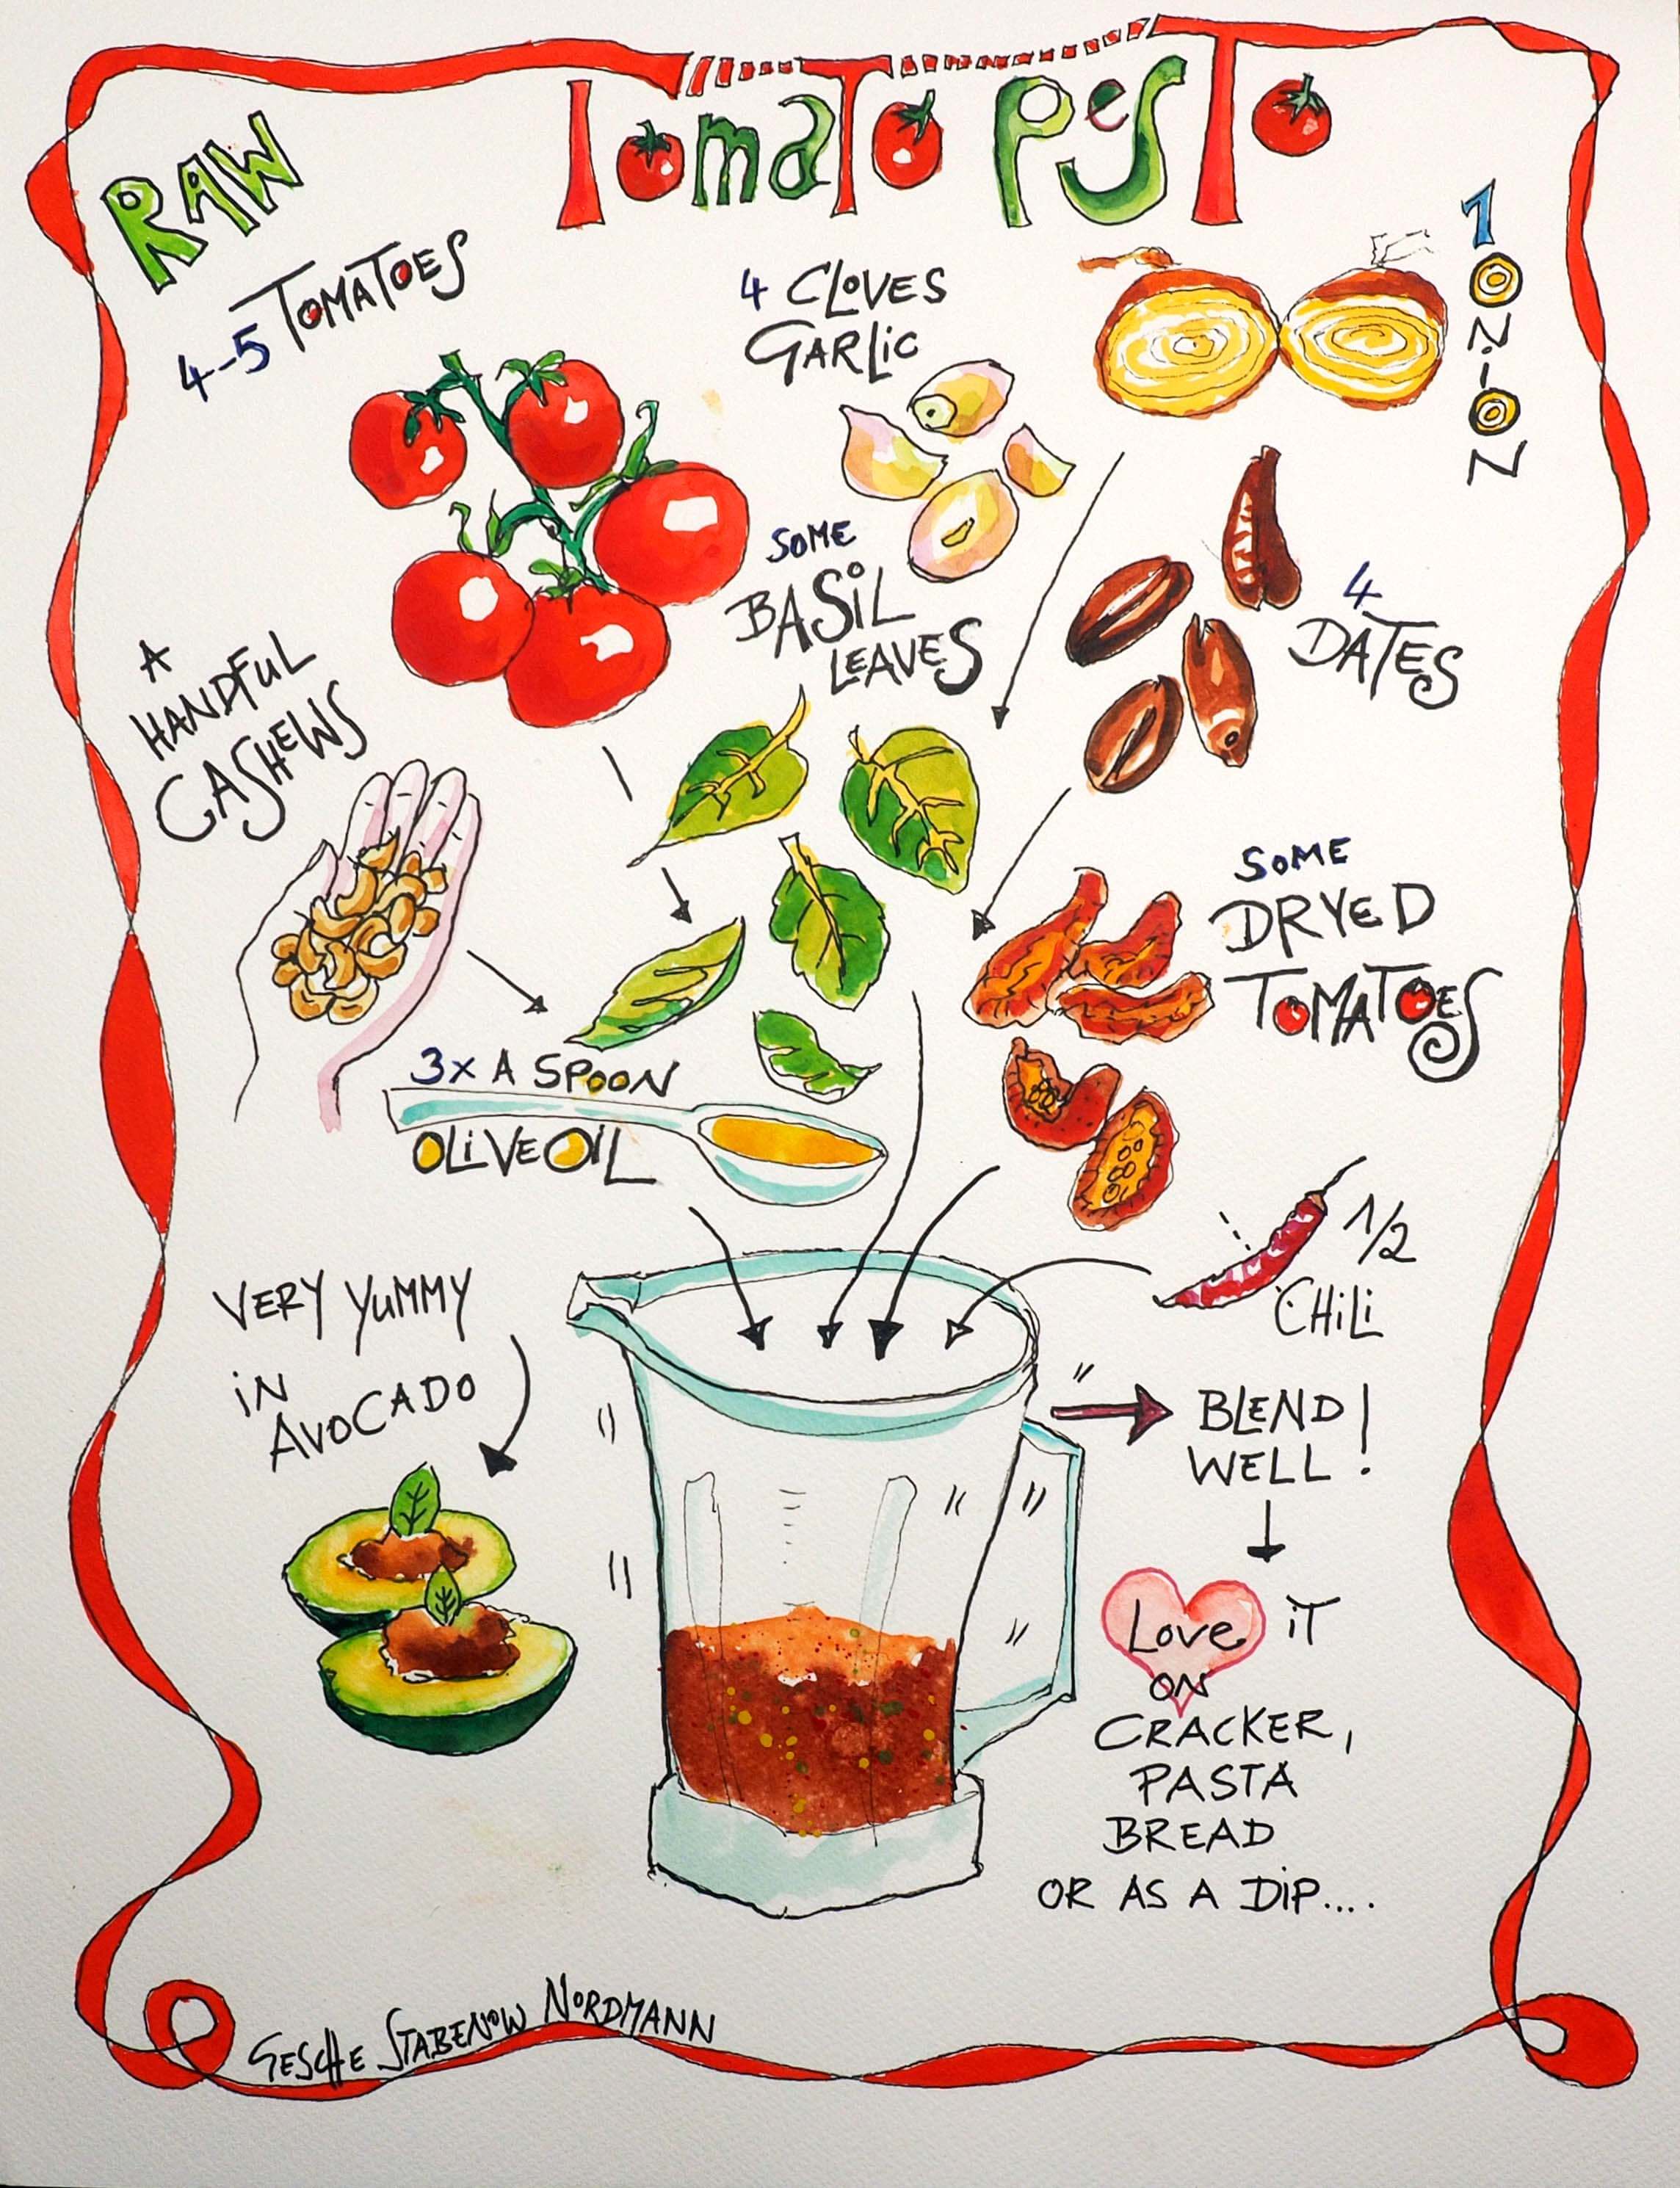 RAW
TomaTo pesTo
4-5 TOMATOES
4 CLOVES
GARLiC
1 ONiON
SOME
BASiL
LEAVES
4
DATES
A
HANDFUL
CASHEWS
SOME
DRYED
TOMATOES
3x A SPOON
OLiVEOiL
1/2
CHiLi
VERY YuMMY
iN
AVOCADO
BLEND
WELL!
Love iT
ON
CRACKER,
PASTA
BREAD
OR AS A DiP....
GESCHE STABENOW NORDMANN